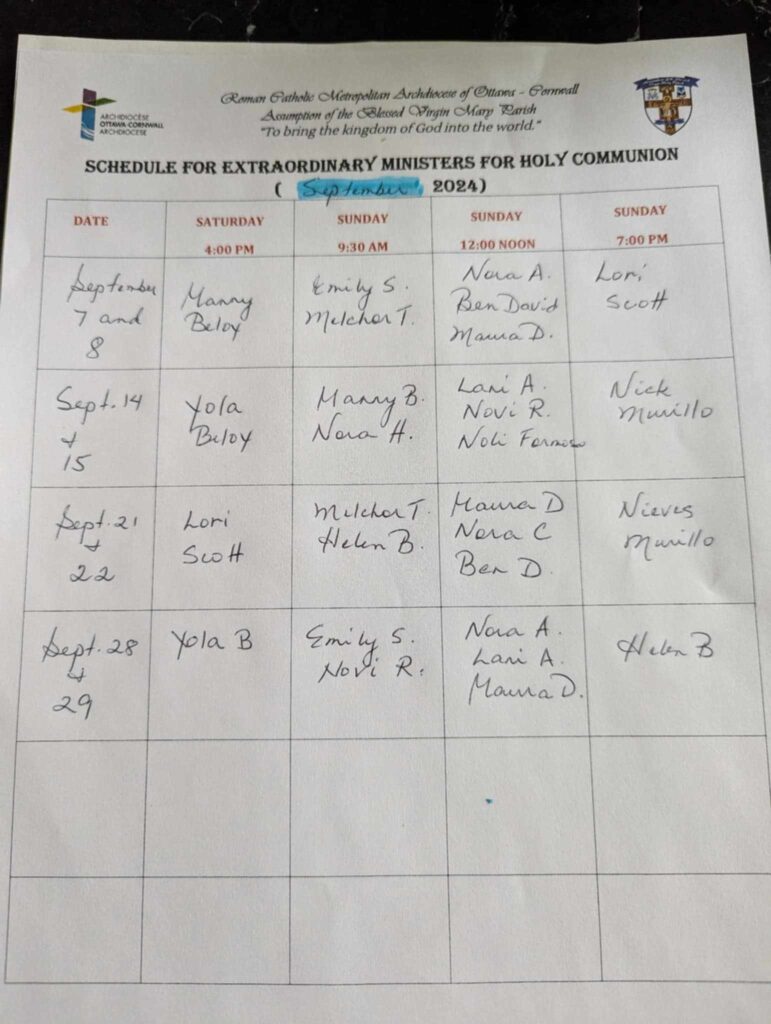 ARCHDIOCESE
OTTAWA-CORNWALL
ARCHDIOCÈSE
Roman Catholic Metropolitan Archdiocese of Ottawa - Cornwall
Assumption of the Blessed Virgin Mary Parish
"To bring the kingdom of God into the world."
SCHEDULE FOR EXTRAORDINARY MINISTERS FOR HOLY COMMUNION
( September, 2024)
DATE
SATURDAY
4:00 PM
SUNDAY
9:30 AM
SUNDAY
12:00 NOON
SUNDAY
7:00 PM
September
7 and
8
Manny
Beloy
Emily S.
Melchor T.
Nora A.
Ben David
Maura D.
Lori
Scott
Sept. 14
+
15
Yola
Beloy
Manny B.
Nora H.
Lani A.
Novi R.
Noli Formoso
Nick
Murillo
Sept. 21
+
22
Lori
Scott
Melchor T.
Helen B.
Maura D
Nora C
Ben D.
Nieves
Murillo
Sept. 28
+
29
Yola B
Emily S.
Novi R.
Nora A.
Lani A.
Maura D.
Helen B